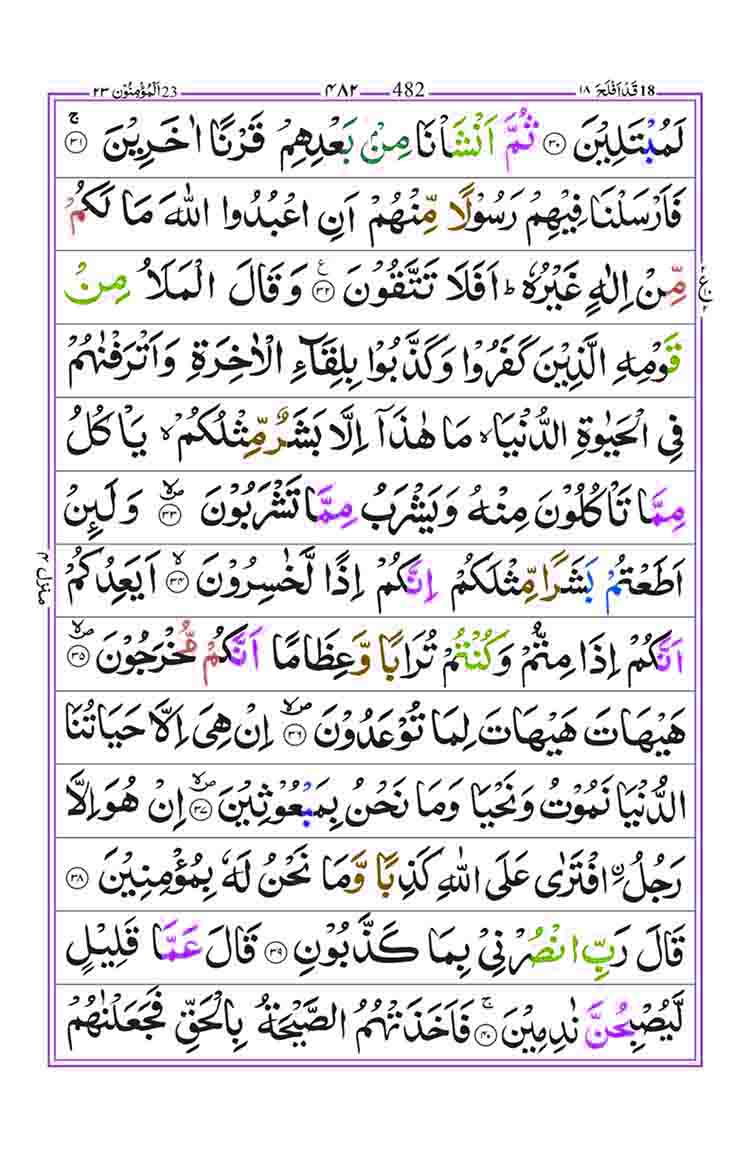 18 قَدْ اَفْلَحَ ١٨ 482 ۴۸۲ 23 اَلْمُؤْمِنُوْن ٢٣
لَمُبْتَلِيْنَ ۳۰ ثُمَّ اَنْشَاْنَا مِنْۢ بَعْدِهِمْ قَرْنًا اٰخَرِيْنَ ۚ ۳۱
فَاَرْسَلْنَا فِيْهِمْ رَسُوْلًا مِّنْهُمْ اَنِ اعْبُدُوا اللّٰهَ مَا لَكُمْ
مِّنْ اِلٰهٍ غَيْرُهٗ ؕ اَفَلَا تَتَّقُوْنَ ۳۲ ع وَقَالَ الْمَلَاُ مِنْ
قَوْمِهِ الَّذِيْنَ كَفَرُوْا وَكَذَّبُوْا بِلِقَآءِ الْاٰخِرَةِ وَاَتْرَفْنٰهُمْ
فِي الْحَيٰوةِ الدُّنْيَا ۙ مَا هٰذَآ اِلَّا بَشَرٌ مِّثْلُكُمْ ۙ يَاْكُلُ
مِمَّا تَاْكُلُوْنَ مِنْهُ وَيَشْرَبُ مِمَّا تَشْرَبُوْنَ ۙ ۳۳ وَلَىِٕنْ
اَطَعْتُمْ بَشَرًا مِّثْلَكُمْ اِنَّكُمْ اِذًا لَّخٰسِرُوْنَ ۙ ۳۴ اَيَعِدُكُمْ
منزل ۴
اَنَّكُمْ اِذَا مِتُّمْ وَكُنْتُمْ تُرَابًا وَّعِظَامًا اَنَّكُمْ مُّخْرَجُوْنَ ۙ ۳۵
هَيْهَاتَ هَيْهَاتَ لِمَا تُوْعَدُوْنَ ۙ ۳۶ اِنْ هِيَ اِلَّا حَيَاتُنَا
الدُّنْيَا نَمُوْتُ وَنَحْيَا وَمَا نَحْنُ بِمَبْعُوْثِيْنَ ۙ ۳۷ اِنْ هُوَ اِلَّا
رَجُلُ ِۨ افْتَرٰى عَلَى اللّٰهِ كَذِبًا وَّمَا نَحْنُ لَهٗ بِمُؤْمِنِيْنَ ۳۸
قَالَ رَبِّ انْصُرْنِيْ بِمَا كَذَّبُوْنِ ۳۹ قَالَ عَمَّا قَلِيْلٍ
لَّيُصْبِحُنَّ نٰدِمِيْنَ ۚ ۴۰ فَاَخَذَتْهُمُ الصَّيْحَةُ بِالْحَقِّ فَجَعَلْنٰهُمْ